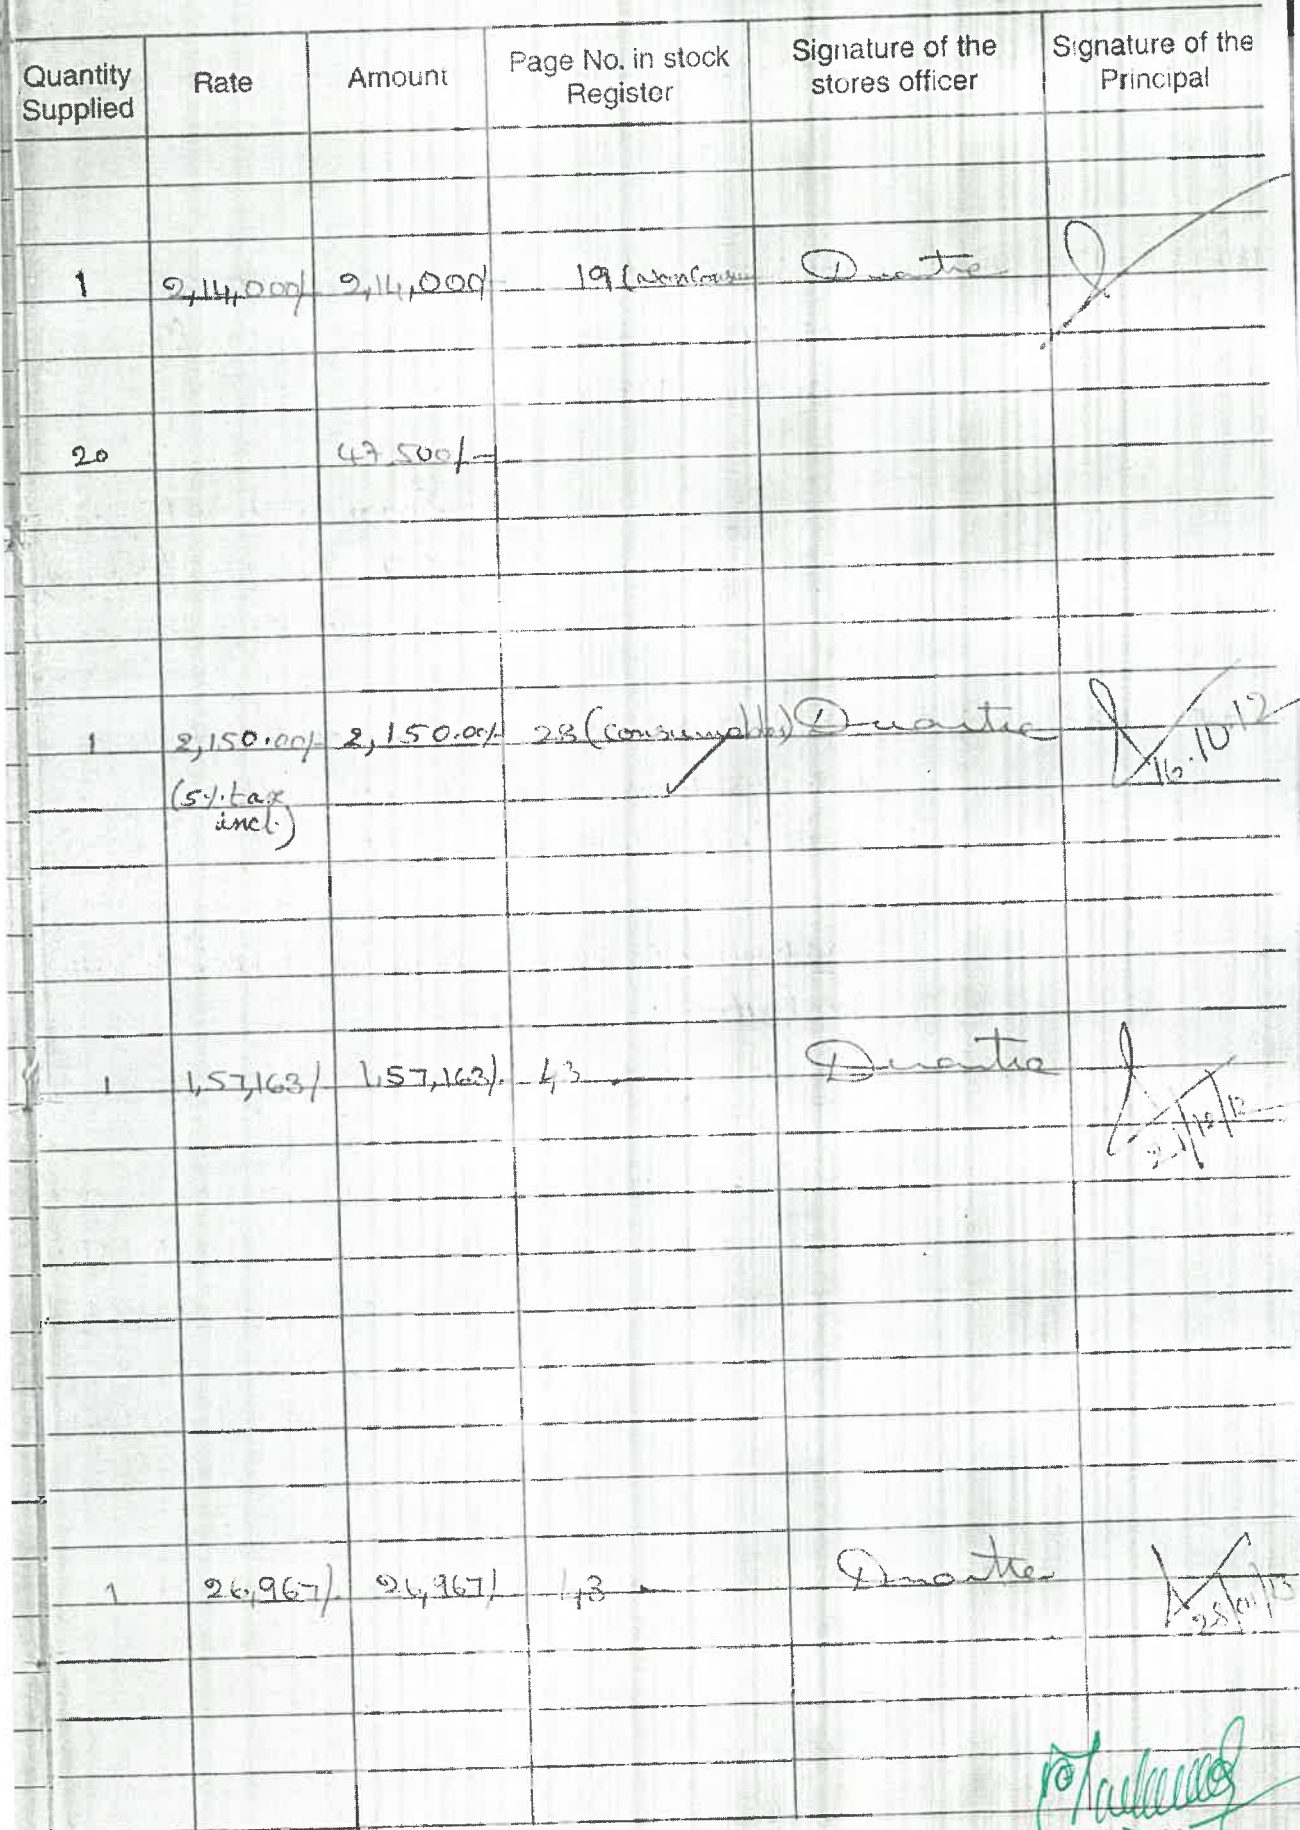 Quantity Supplied Rate Amount Page No. in stock Register Signature of the stores officer Signature of the Principal
1 2,14,000/ 2,14,000/ 19 (NonConsu
20 47,500/-
1 2,150.00/- 2,150.00/- 28 (Consumables) 16.10.12
(5%.tax
incl.)
1 1,57,163/ 1,57,163/. 1,3
1 26,967/. 26,967/ 1,3